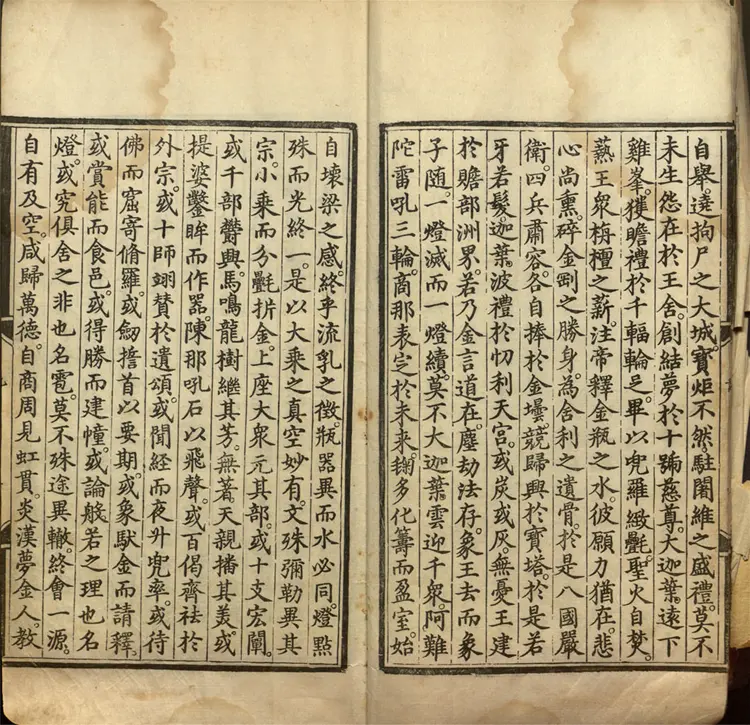 自舉。遶拘尸之大城。寶炬不然。駐闍維之盛禮。莫不
未生怨在於王舍。創結夢於十號慈尊。大迦葉。遠下
雞峯。獲瞻禮於千輻輪足。畢以兜羅緻氎。聖火自焚。
爇王眾栴檀之薪。注帝釋金瓶之水。彼願力猶在。悲
心尚熏。碎金剛之勝身。為舍利之遺骨。於是八國嚴
衛。四兵肅容。各自捧於金壜。競歸興於寶塔。於是若
牙若髮。迦葉波禮於忉利天宮。或炭或灰。無憂王建
於贍部洲界。若乃金言道在。塵劫法存。象王去而象
子隨。一燈滅而一燈續。莫不大迦葉雲迎千眾。阿難
陀雷吼三輪。商那表定於未來。鞠多化籌而盈室。始
自壞梁之感。終乎流乳之徵。瓶器異而水必同。燈點
殊而光終一。是以大乘之真空妙有。文殊彌勒異其
宗。小乘而分氎折金。上座大眾元其部。或十支宏闡。
或千部鬱興。馬鳴龍樹繼其芳。無著天親播其美。或
提婆鑿眸而作器。陳那吼石以飛聲。或百偈齊祛於
外宗。或十師翊贊於遺頌。或聞經而夜升兜率。或待
佛而窟寄脩羅。或劒擔首以要期。或象馱金而請釋。
或賞能而食邑。或得勝而建幢。或論般若之理也名
燈。或究俱舍之非也名雹。莫不殊途異轍。終會一源。
自有及空。咸歸萬德。自商周見虹貫。炎漢夢金人。教